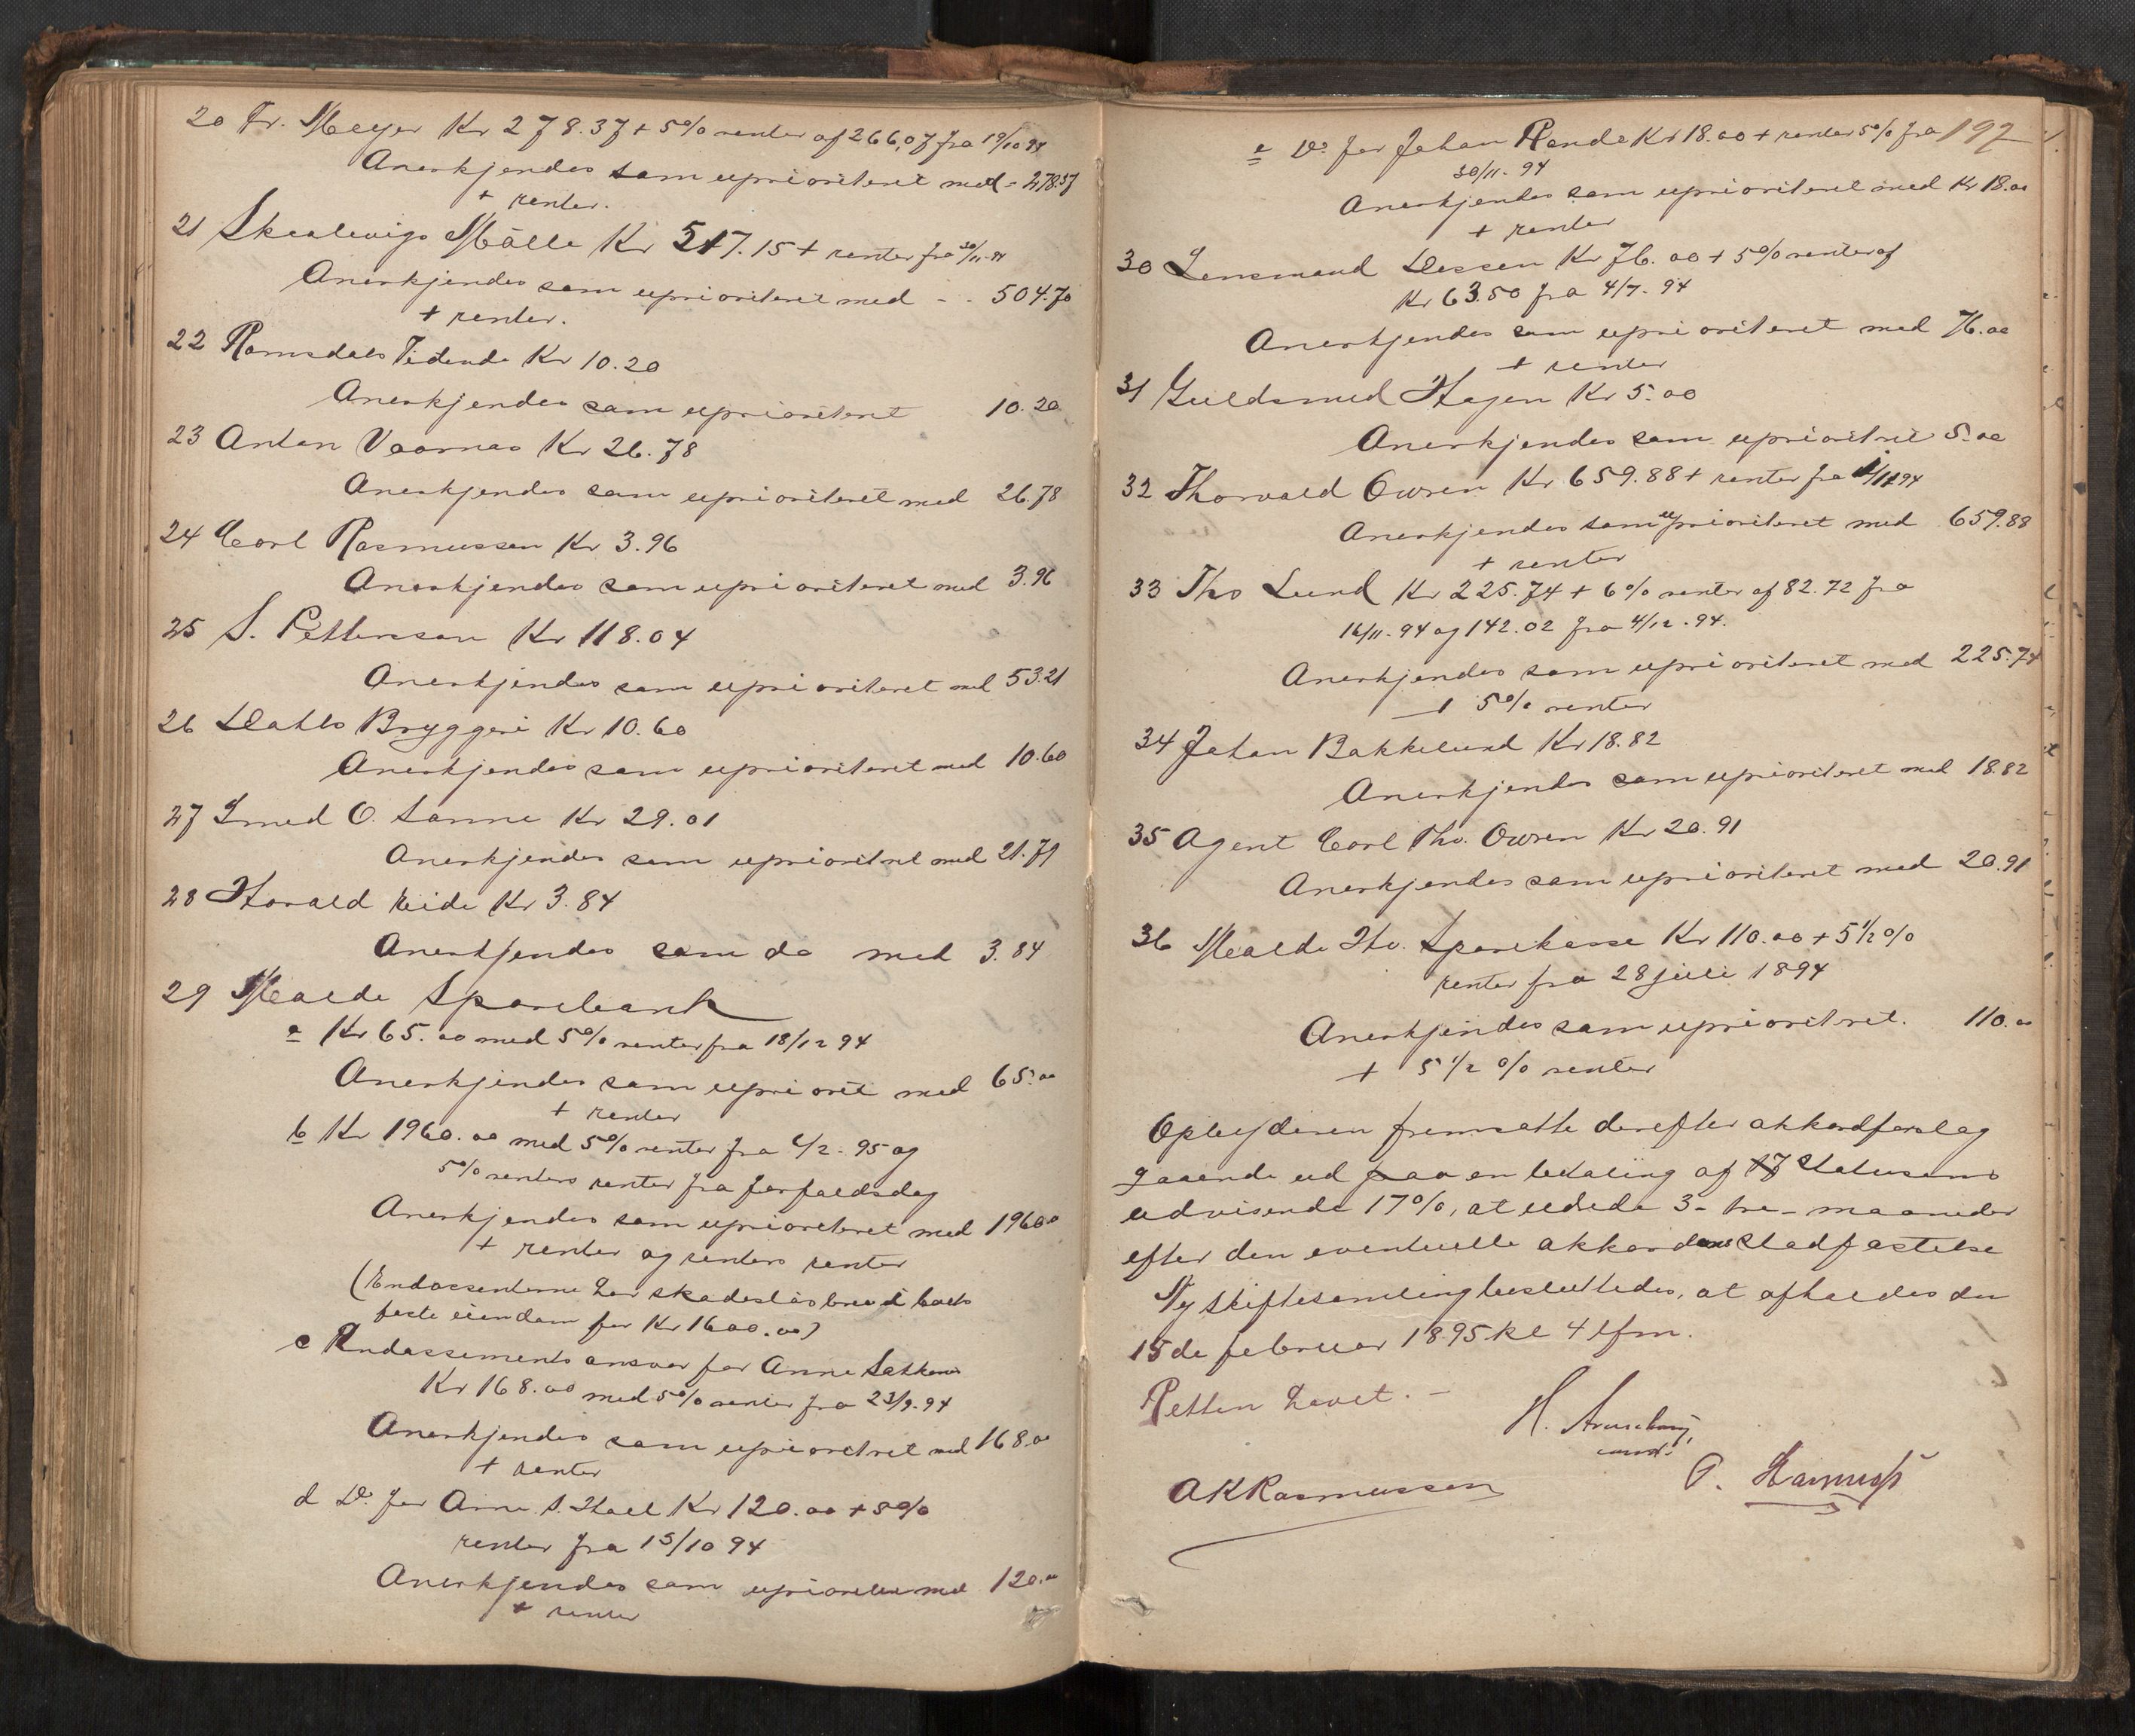 20 Fr. Meyer Kr 278.37 + 5% renter af 266,07 fra 19/10 94
Anerkjendes som uprioriteret med - 278.37
+ renter.
21 Skalevigs Mölle Kr 517.15 + renter fra 30/11-94
Anerkjendes som uprioriteret med - - 504.70
+ renter.
22 Romsdals Tidende Kr 10.20
Anerkjendes som uprioriteret 10.20
23 Anton Vaarnas Kr 26.78
Anerkjendes som uprioriteret med 26.78
24 Carl Rasmussen Kr 3.96
Anerkjendes som uprioriteret med 3.96
25 S. Petterson Kr 118.04
Anerkjendes som uprioriteret med 53.21
26 Dahls Bryggeri Kr 10.60
Anerkjendes som uprioriteret med 10.60
27 Smed O. Sanne Kr 29.01
Anerkjendes som uprioritret med 21.71
28 Harald Eide Kr 3.84
Anerkjendes som do med 3.84
29 Molde Sparebank
a Kr 65.00 med 5% renter fra 18/12 94
Anerkjendes som upriorit med 65.00
+ renter
b Kr 1960.00 med 5% renter fra 6/2-95 og
5% renters renter fra forfaldsdag
Anerkjendes som uprioriteret med 1960.00
+ renter og renters renter
(Endossenterne har skadeslösbrev i boets
faste eiendom for Kr 1600.00)
c Endossements ansvar for Anne
Kr 168.00 med 5% renter fra 23/9-94
Anerkjendes som uprioritret med 168.00
+ renter
d Do for Arne S. Hoel Kr 120.00 + 5%
renter fra 15/10 94
Anerkjendes som med 120.00
+ renter
192
e Do for Johan Rande Kr 18.00 + renter 5% fra
30/11-94
Anerkjendes som uprioriteret med Kr 18.00
+ renter
30 Lensmand Dessen Kr 76.00 + 5% renter af
Kr 63.50 fra 4/7-94
Anerkjendes som uprioriteret med 76.00
+ renter
31 Guldsmed Hagen Kr 5.00
Anerkjendes som uprioritret 5.00
32 Thorvald Owren Kr 659.88 + renter fra 1/11 94
Anerkjendes som uprioriteret med 659.88
+ renter
33 Ths Lund Kr 225.74 + 6% renter af 82.72 fra
16/11-94 og 142.02 fra 4/12-94.
Anerkjendes som uprioriteret med 225.74
+ 5% renter
34 Johan Bakkelund Kr 18.82
Anerkjendes som uprioriteret med 18.82
35 Agent Carl Ths. Owren Kr 20.91
Anerkjendes som uprioriteret med 20.91
36 Molde Hv. Sparekasse Kr 110.00 + 5 1/2%
renter fra 28 juli 1894
Anerkjendes som uprioritret. 110.00
+ 5 1/2 % renter
Opbyderen fremsatte derefter akkordforslag
gaaende ud paa en betaling af 17 Statusens
udvisende 17%, at udrede 3 - tre - maaneder
efter den eventuelle akkordens Stadfæstelse
Ny Skiftesamling besluttedes, at afholdes den
15de februar 1895 kl 4 efm.
Retten hævet. -
H.
const.
AKRasmussen
P.